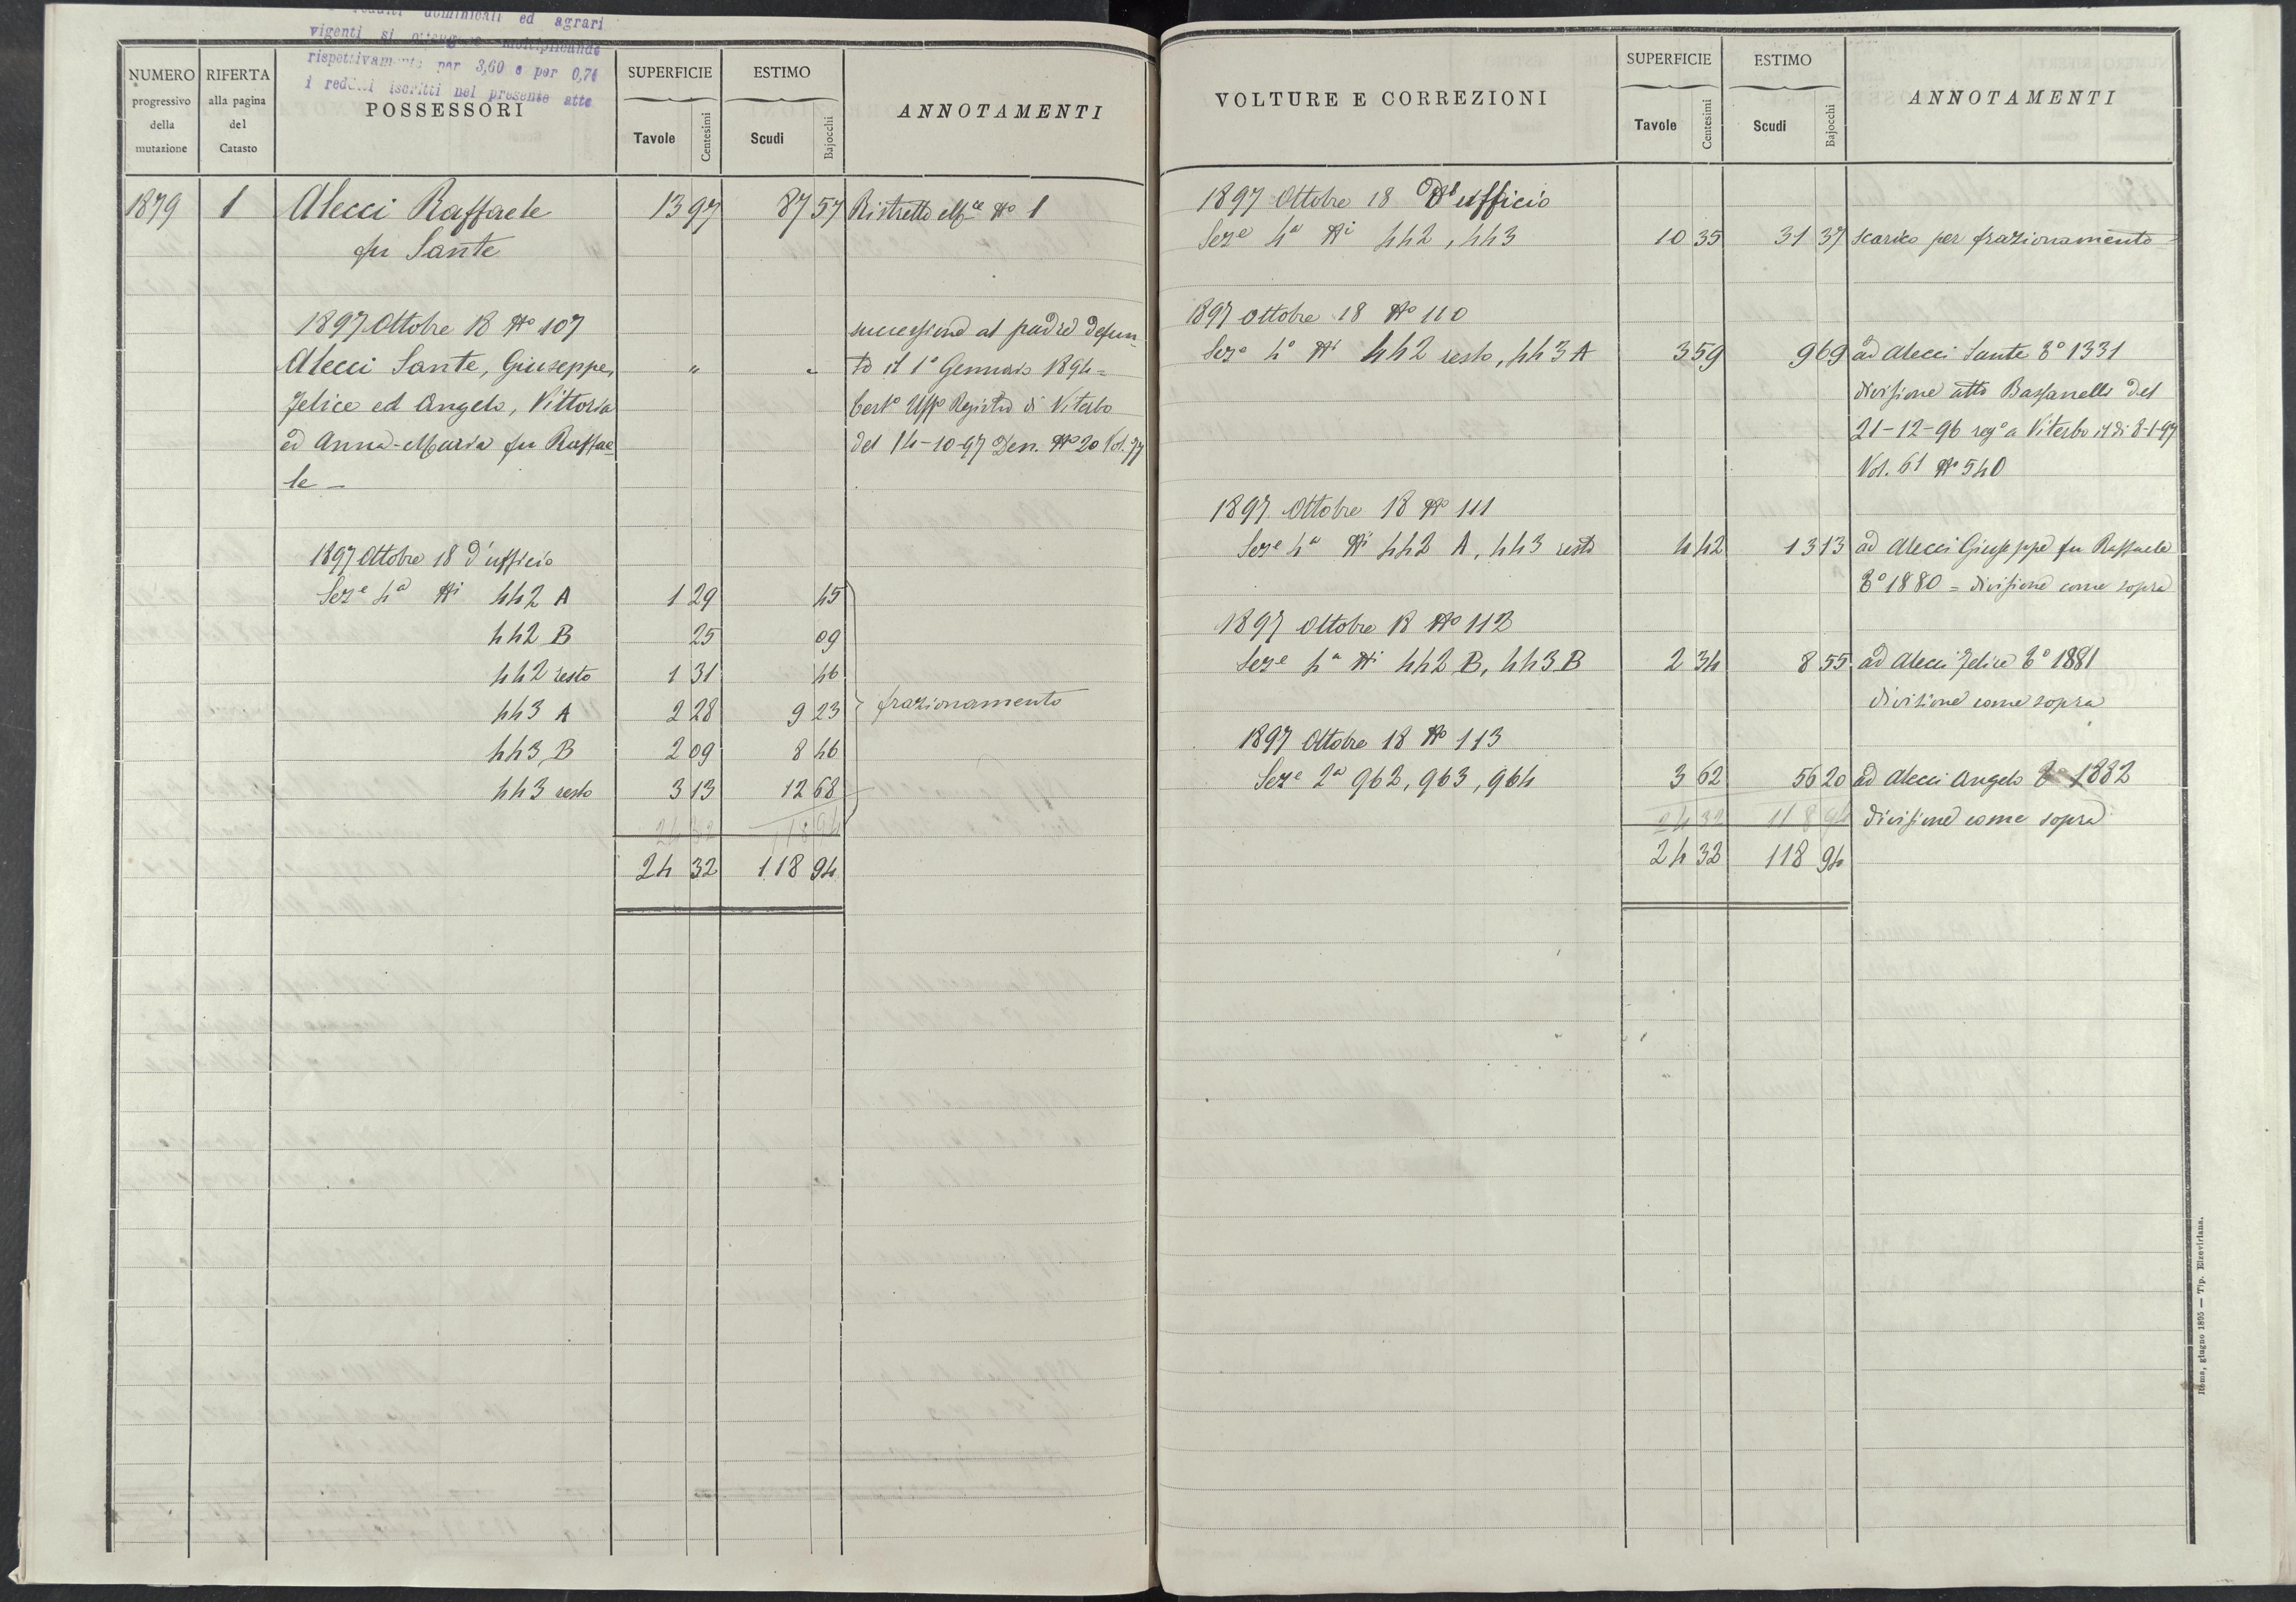 redditi dominicali ed agrari
vigenti si moltiplicando
rispettivamente per 3,60 e per
i redditi iscritti nel presente atto
NUMERO progressivo della mutazione
RIFERTA alla pagina del Catasto
POSSESSORI
SUPERFICIE Tavole Centesimi
ESTIMO Scudi Bajocchi
ANNOTAMENTI
1879 1 Alecci Raffaele 13 97 87 57 Ristretto Mce No 1
fu Sante
1897 Ottobre 18 No 107 successione al padre defun-
Alecci Sante, Giuseppe, " " to il 1° Gennaio 1894=
Felice ed Angelo, Vittoria Certo Uffo Registro di Viterbo
ed Anna-Maria fu Raffae- del 14-10-97 Den. No 20 Vol. 77
le –
1897 Ottobre 18 d'ufficio
Seze 4a Ni 442 A 1 29 45
442 B 25 09
442 resto 1 31 46
443 A 2 28 9 23 frazionamento
443 B 2 09 8 46
443 resto 3 13 12 68
24 32 118 94
24 32 118 94
VOLTURE E CORREZIONI
SUPERFICIE Tavole Centesimi
ESTIMO Scudi Bajocchi
ANNOTAMENTI
1897 Ottobre 18 D'ufficio
Seze 4a Ni 442, 443 10 35 31 37 scarico per frazionamento =
1897 Ottobre 18 No 110
Seze 4a Ni 442 resto, 443 A 3 59 9 69 ad Alecci Sante 1331
divisione atto Bassanelli del
21-12-96 rego a Viterbo il dì 8-1-97
Vol. 61 No 540
1897 Ottobre 18 No 111
Seze 4a Ni 442 A, 443 resto 4 42 13 13 ad Alecci Giuseppe fu Raffaele
1880 = divisione come sopra
1897 Ottobre 18 No 112
Seze 4a Ni 442 B, 443 B 2 34 8 55 ad Alecci Felice 1881
divisione come sopra
1897 Ottobre 18 No 113
Seze 2a 962, 963, 964 3 62 56 20 ad Alecci Angelo 1882
24 32 118 94 divisione come sopra
24 32 118 94
Roma, giugno 1895 — Tip. Elzeviriana.